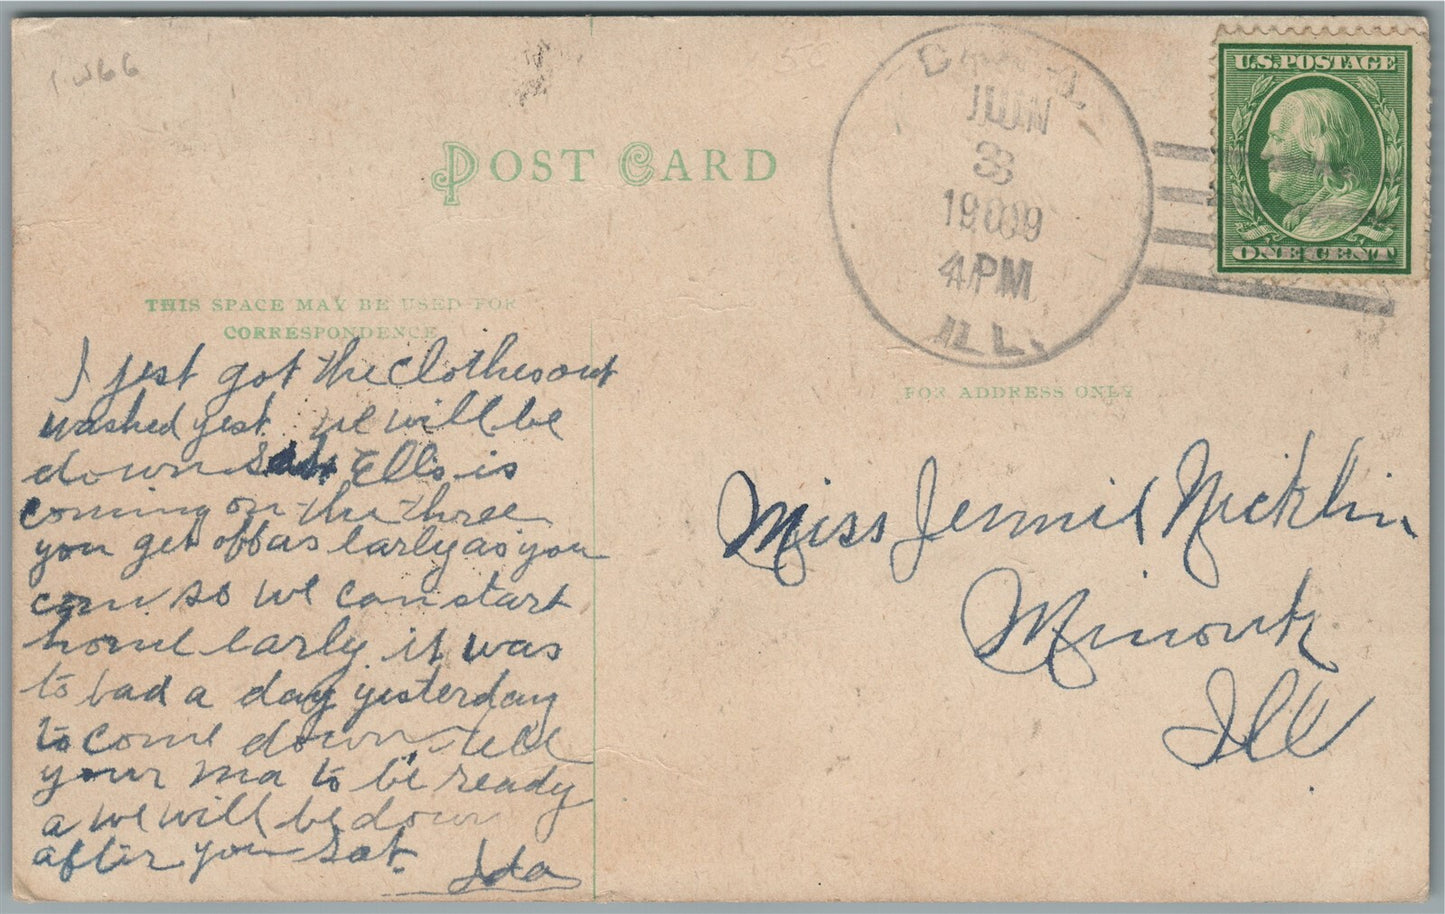 1w66
50
POST CARD
JUN
3
1909
4PM
ILL.
U.S.POSTAGE
ONE CENT
THIS SPACE MAY BE USED FOR
CORRESPONDENCE
FOR ADDRESS ONLY
I jest got the clothes out
washed yest we will be
down Sat Ells is
coming on the three
you get off as early as you
can so we can start
home early. it was
to bad a day yesterday
to come down tell
your ma to be ready
a we will be down
after you Sat.
Ida
Miss Jennie Nicklin
Minonk
Ill